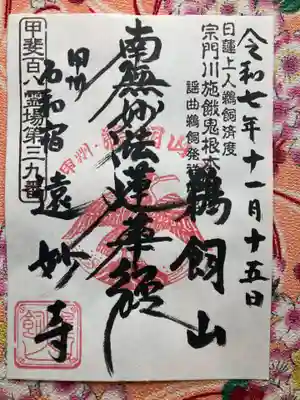 令和七年十一月十五日
日蓮上人鵜飼済度
宗門川施餓鬼根本
謡曲鵜飼発祥
鵜飼山
南無妙法蓮華経
甲州
石和宿
遠妙寺
甲斐百八霊場第三十九番